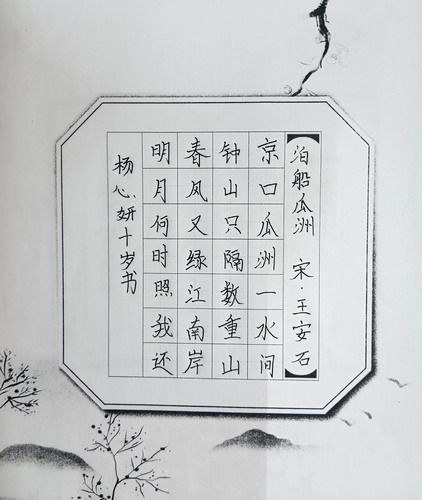 泊船瓜洲 宋·王安石
京口瓜洲一水间
钟山只隔数重山
春风又绿江南岸
明月何时照我还
杨心妍十岁书